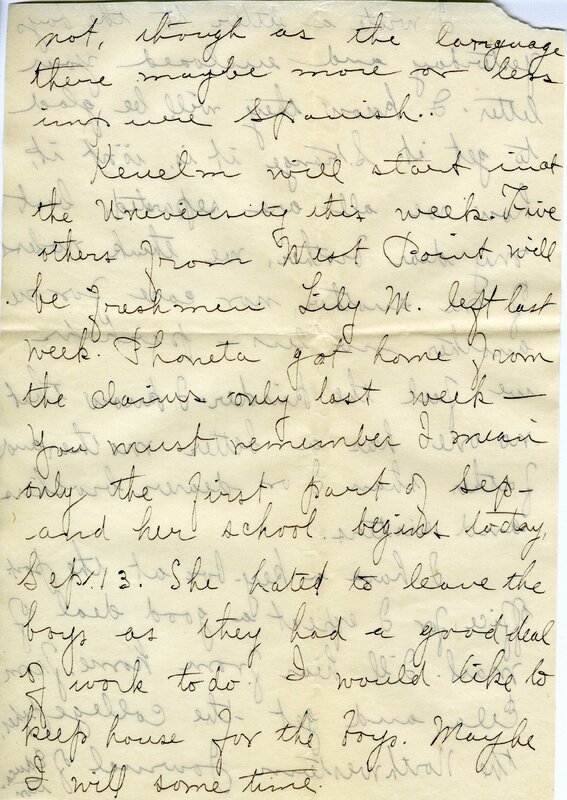 not, though as the language
there maybe more or less
impure Spanish.
Kenelm will start in at
the University this week. Five
others from West Point will
be freshmen Lily M. left last
week. Phoneta got home from
the claims only last week —
You must remember I mean
only the first part of Sep-
and her school begins today,
Sep. 13. She hated to leave the
boys as they had a good deal
of work to do. I would like to
keep house for the boys. Maybe
I will some time.